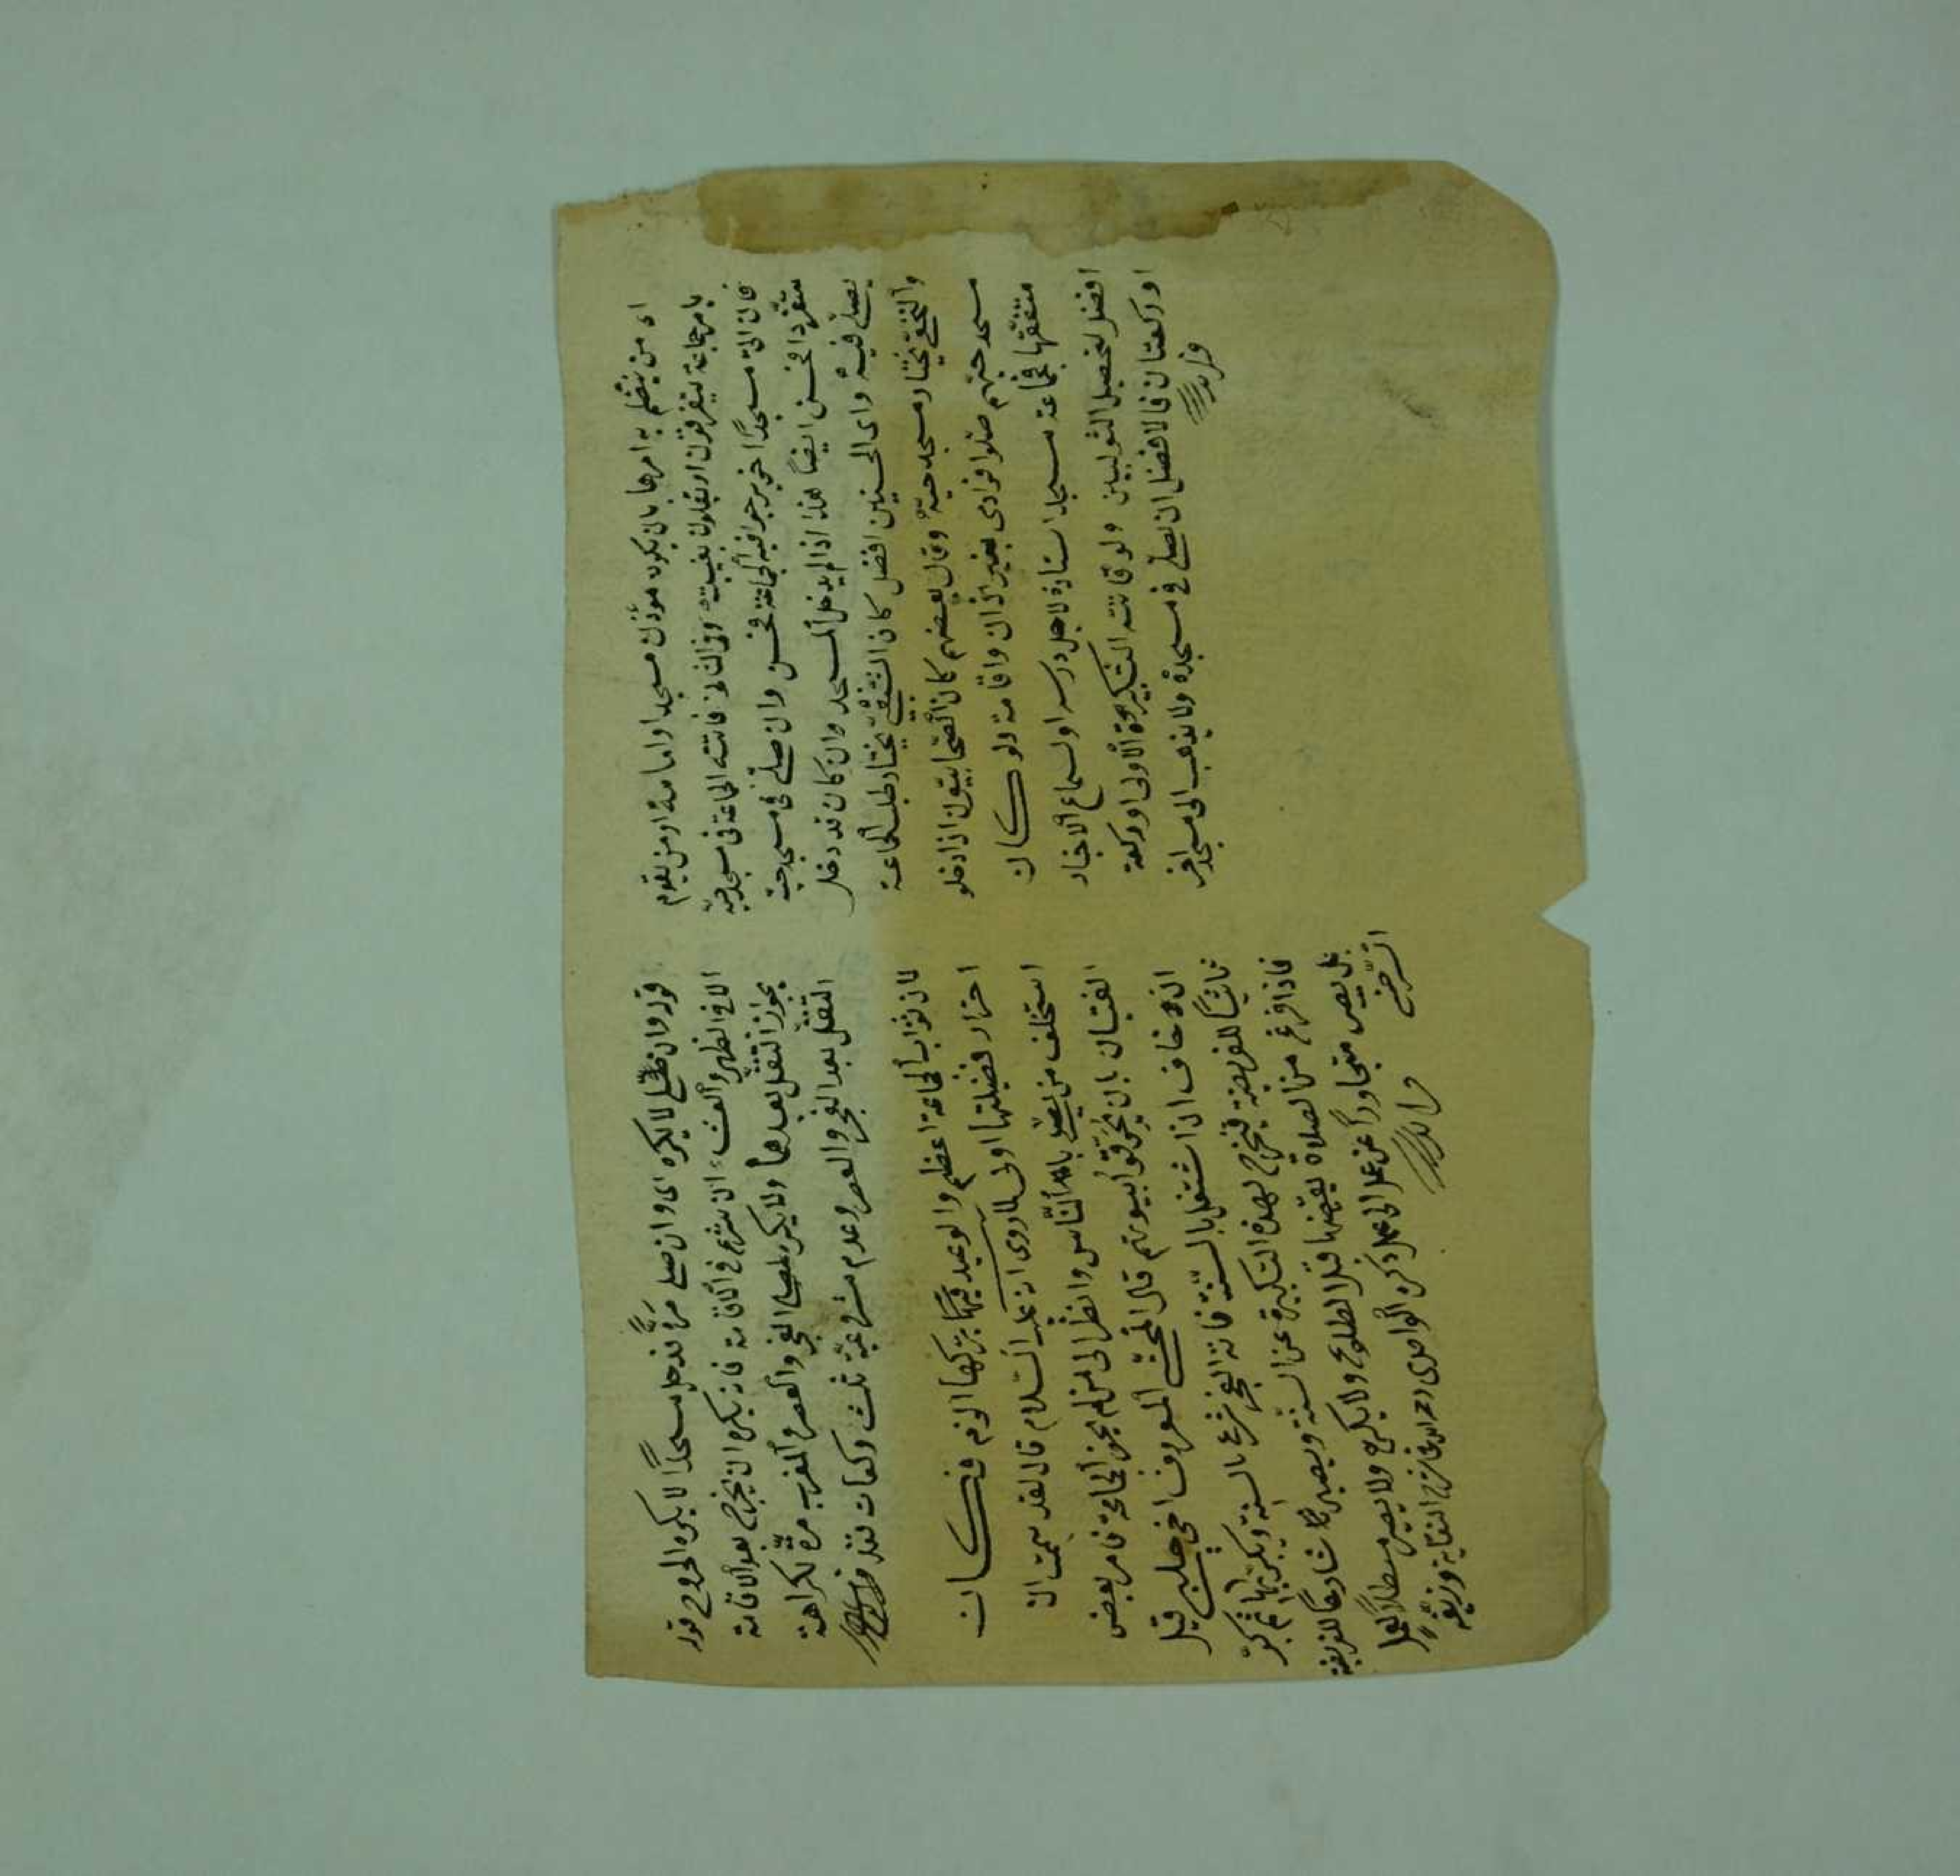 اى من ينتظم به امرها بان يكون مؤذن مسجد او امامه او من يقوم
بامر جماعة يتفرقون او يقلون بغيبته وفى النهاية فاتته الجماعة فى مسجد حيه
فان اتى مسجدًا آخر يرجو فيه الجماعة فحسن وان صلى فى مسجد حيه
منفردا فحسن ايضًا هذا اذا لم يدخل المسجد وان كان قد دخل
يصلى فيه واى الحسنين افضل كان الشفيق يختار طلب الجماعة
والنخعى يختار مسجد حيه وقال بعضهم كان الصحابيون اذا دخلو
مسجد حيهم صلوا فرادى بغير اذان واقامة ولو كان
متفقها فجماعة مسجد استاذه لاجل درسه او لسماع الاخبار
افضل لتحصيل الثوابين ولو فاتته التكبيرة الاولى او ركعة
او ركعتان فالافضل ان يصلى فى مسجده ولا يذهب الى مسجد اخر
قوله وان صلى لا يكره اى وان صلى مرة فدخل مسجدًا لا يكره الخروج قوله
الا فى الظهر والعشاء ان شرع فى الاقامة فانه يكره ان يخرج بعد الاقامة
بجواز التنفل بعدها ولا يكره لمصلى الفجر والعصر والمغرب مرة لكراهة
التنفل بعد الفجر والعصر وعدم مشروعية ثلث ركعات
لان ثواب الجماعة اعظم والوعيد فيها بتركها الزم فكان
احراز فضيلتها اولى لما روى انه عليه السلام قال لقد هممت ان
استخلف من يصلى بالناس وانظر الى من لم يحضر الجماعة فامر بعض
الفتيان بان يحرقوا بيوتهم قال المحشى المعروف اخى چلبى قيل
ان خاف ان اشتغل بالسنة فاتته الفجر شرع بالسنة وكبر لها ثم كبر
ثانيًا للفريضة فيخرج بهذه التكبيرة عن السنة ويصير شارعًا للفريضة
فاذا فرغ من الصلاة يقضيها قبل الطلوع ولا يكره ولا يصير مبطلًا للعمل
بل يصير متجاوزًا عن عمل الى عمل ذكره القوامدى رحمه الله فى شرح النقاية وزيفه
السرخسى